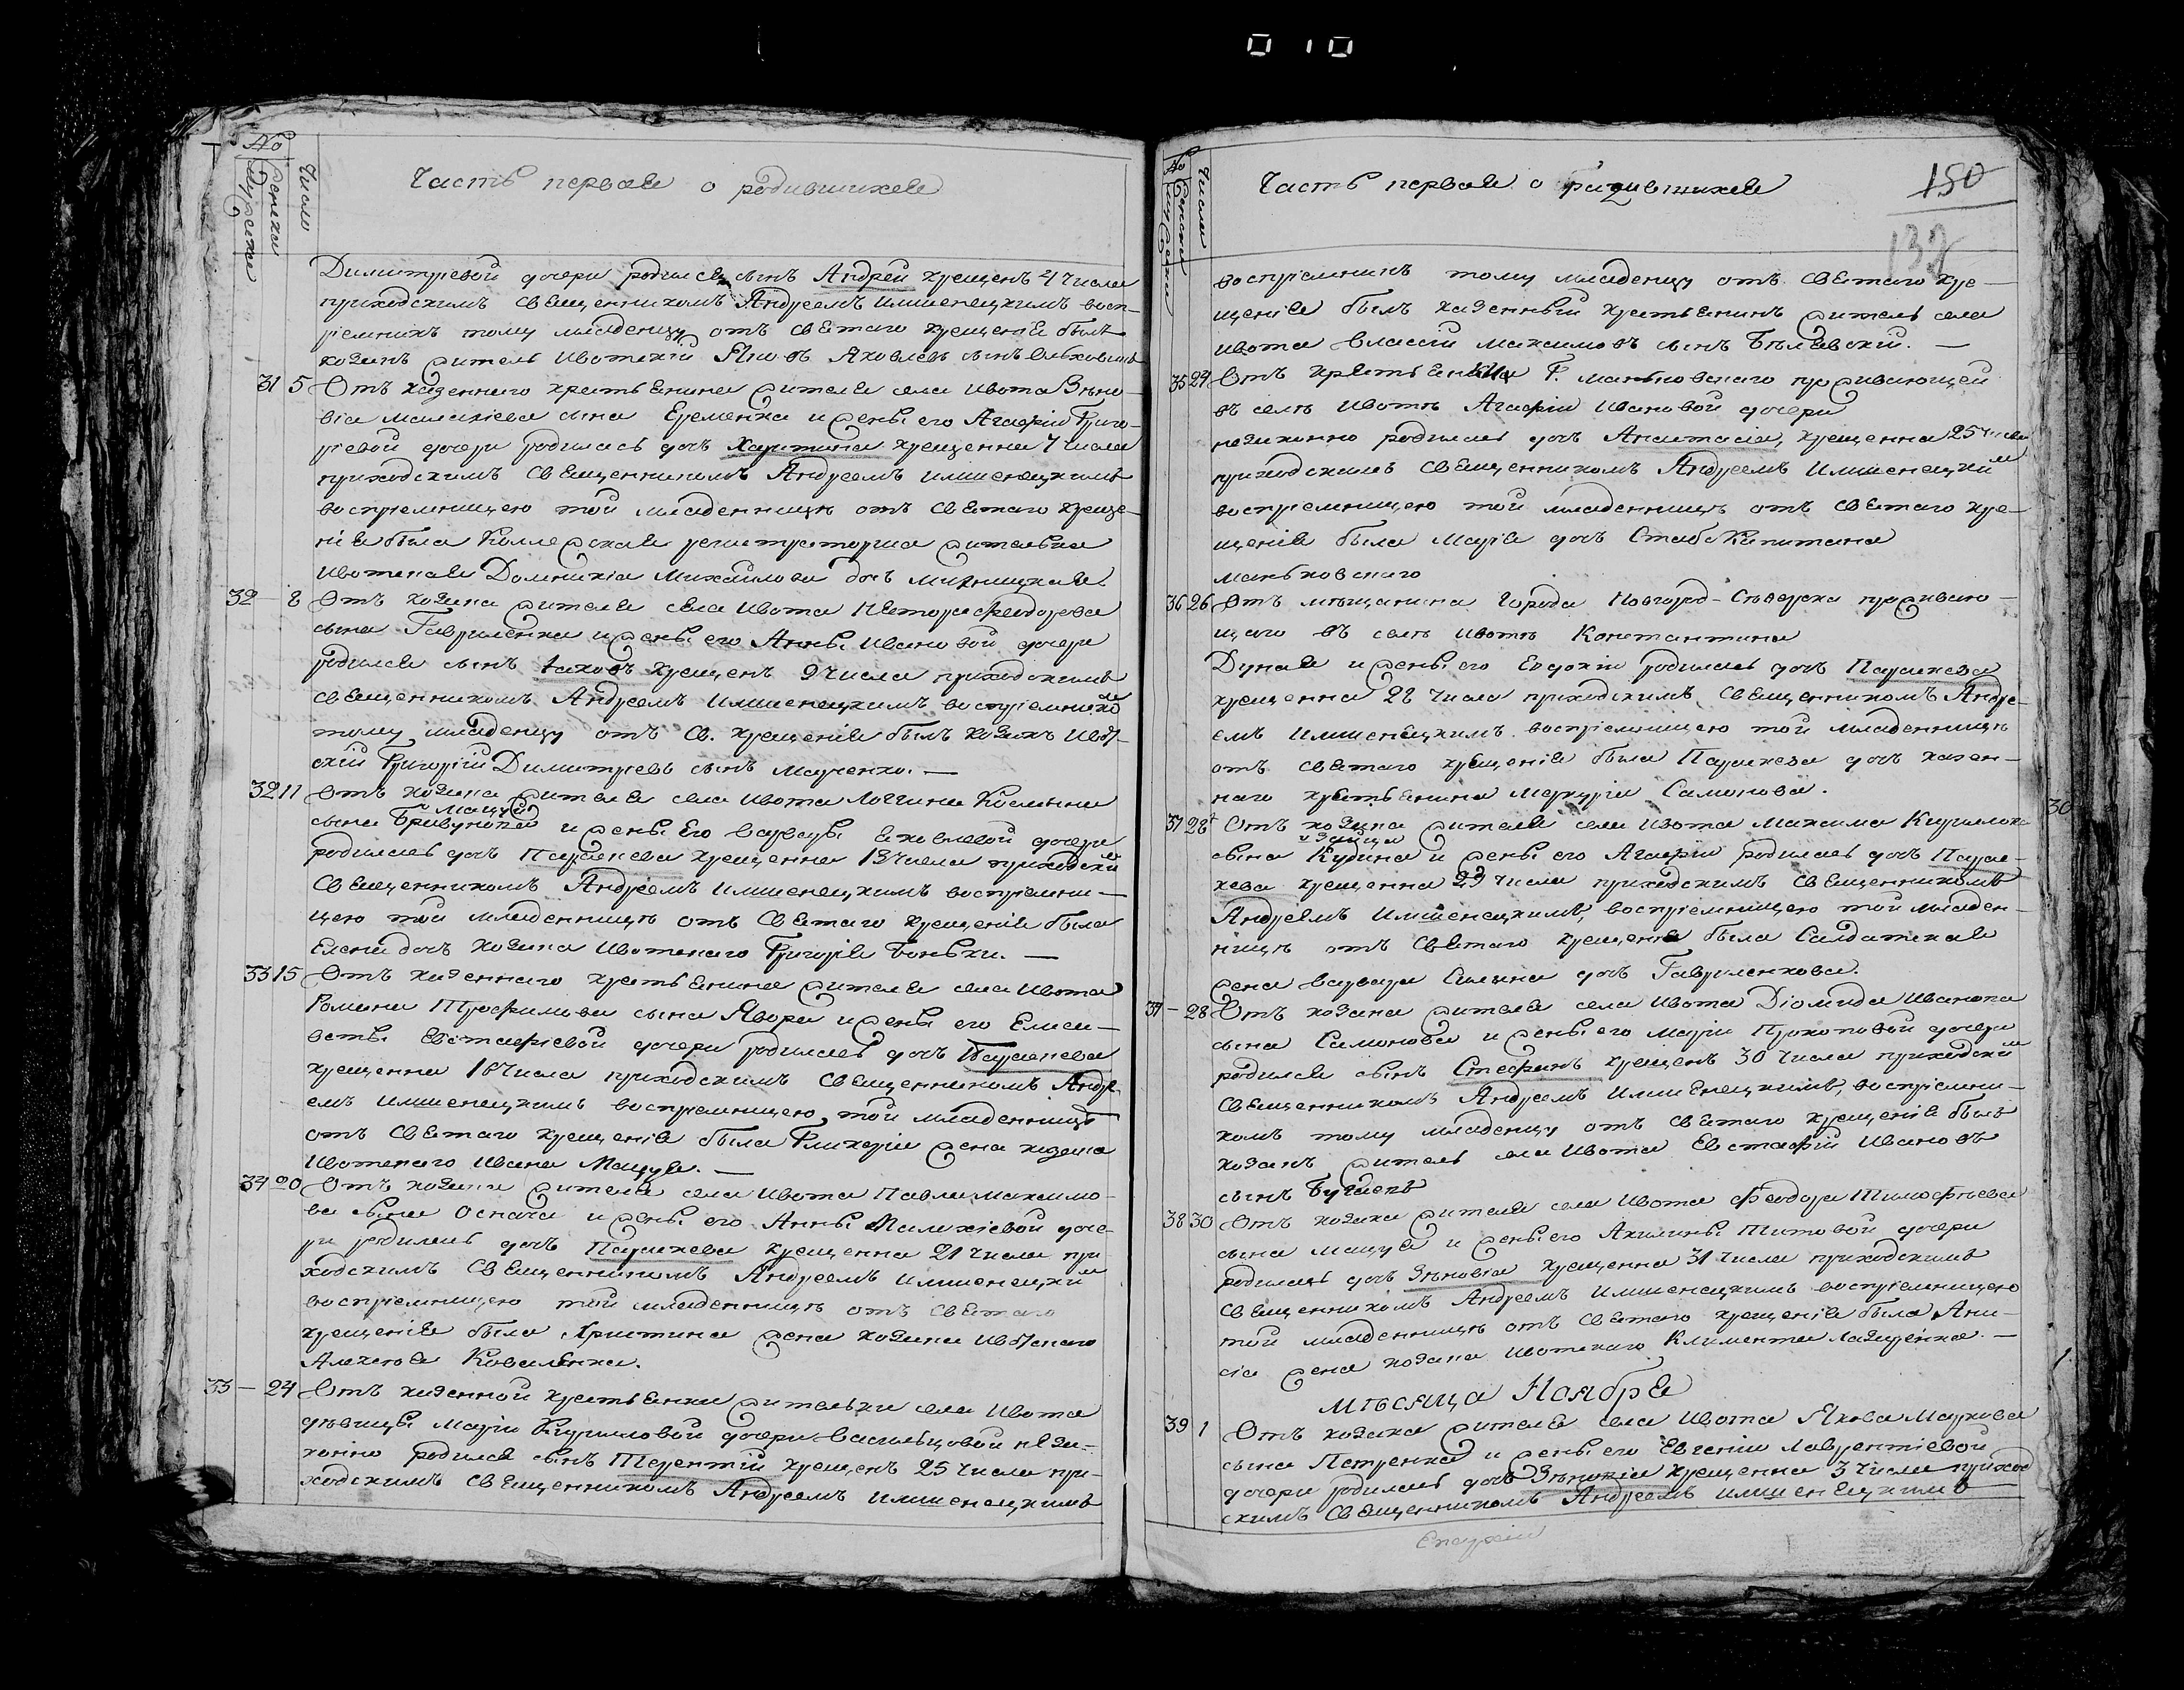 010
№
Мужска
Женска
Число
Часть первая о родившихся
Димитріевой дочери родился сынъ Андрей крещенъ 4 числа
приходскимъ священникомъ Андреемъ Имшенецкимъ восп-
ріемникъ тому младенцу отъ святаго крещенія былъ
козакъ житель Ивотскій Яковъ Яковлевъ сынъ
31 5 Отъ казеннаго крестьянина жителя села Ивота Зѣно-
вія Малахіева сына Еременка и жены его Агафіи Григо-
ріевой дочери родилась дочь Харитина крещенна 7 числа
приходскимъ священникомъ Андреемъ Имшенецкимъ
воспріемницею той младенницѣ отъ святаго креще-
нія была Коллежская регистраторша жителька
Ивотская Домникія Михайлова дочь
32 — 8 Отъ козака жителя села Ивота Нестора Феодорова
сына Гавриленка и жены его Анны Ивановой дочери
родился сынъ Іаковъ крещенъ 9 числа приходскимъ
священникомъ Андреемъ Имшенецкимъ воспріемникомъ
тому младенцу отъ св. крещенія былъ козакъ Ивот-
скій Григорій Димитріевъ сынъ Марченко. —
32 11 Отъ козака жителя села Ивота Логгина Косьмина
Мацуя
сына и жены его Варвары Яковлевой дочери
родилась дочь Параскева крещенна 13 числа приходским
священникомъ Андреемъ Имшенецкимъ воспріемни-
цею той младенницѣ отъ святаго крещенія была
Елена дочь козака Ивотскаго Григорія Боньки. —
33 15 Отъ казеннаго крестьянина жителя села Ивота
Романа Трофимова сына Явора и жены его Елиса-
веты Евстафіевой дочери родилась дочь Параскева
крещенна 18 числа приходскимъ священникомъ Андре-
емъ Имшенецкимъ воспріемницею той младенницѣ
отъ святаго крещенія была Гликерія жена козака
Ивотскаго Ивана Мацуя. —
34 20 Отъ козака жителя села Ивота Павла Максимо-
ва сына Осначa и жены его Анны Малахіевой доче-
ри родилась дочь Параскева крещенна 21 числа при
ходскимъ священникомъ Андреемъ Имшенецким
воспріемницею той младенницѣ отъ святаго
крещенія была Христина жена козака Ивотскаго
Алексѣя Коваленка.
33 — 24 Отъ казенной крестьянки жительки села Ивота
дѣвицы Маріи Кирилловой дочери Васильцовой неза-
конно родился сынъ Терентій крещенъ 25 числа при-
ходскимъ священникомъ Андреемъ Имшенецкимъ
№
Мужска
Женска
Числа
Часть первая о родившихся
150
138
воспріемникъ тому младенцу отъ святаго кре-
щенія былъ казенный крестьянинъ житель села
Ивота Власій Максимовъ сынъ Бѣлявскій. —
35 24 Отъ крестьянки Г. Маньковскаго проживающей
въ селѣ Ивотѣ Агафіи Ивановой дочери
незаконно родилась дочь Анастасія, крещенна 25 числа
приходскимъ священникомъ Андреемъ Имшенецким
воспріемницею той младенницѣ отъ святаго кре-
щенія была Марія дочь Стабс Капитана
Маньковскаго
36 26 Отъ мѣщанина города Новгород-Сѣверска проживаю-
щаго въ селѣ Ивотѣ Константина
Дуная и жены его Евдокіи родилась дочь Параскева
крещенна 28 числа приходскимъ священникомъ Андре-
емъ Имшенецкимъ воспріемницею той младенницѣ
отъ святаго крещенія была Параскева дочь казен-
наго крестьянина Меркурія Самонова.
30
37 28 Отъ козака жителя села Ивота Максима Кириллова
сына Кудина и жены его Агафіи родилась дочь Парас-
кева крещенна 29 числа приходскимъ священникомъ
Андреемъ Имшенецкимъ, воспріемницею той младен-
ницѣ отъ святаго крещенія была Салдатская
жена Варвара Сильина дочь Гавриленкова.
37 — 28 Отъ козака жителя села Ивота Діомида Иванова
сына Самонова и жены его Маріи Прокоповой дочери
родился сынъ Стефанъ крещенъ 30 числа приходским
священникомъ Андреемъ Имшенецкимъ, воспріемни-
комъ тому младенцу отъ святаго крещенія былъ
козакъ житель села Ивота Евстафій Ивановъ
сынъ Бугаевъ
38 30 Отъ козака жителя села Ивота Феодора Тимофѣева
сына Мацуя и жены его Акилины Титовой дочери
родилась дочь Зѣновія крещенна 31 числа приходскимъ
священникомъ Андреемъ Имшенецкимъ воспріемницею
той младенницѣ отъ святаго крещенія была Ани-
сія жена козака Ивотскаго Климента Лазаренка. —
Мѣсяца Ноября
39 1 Отъ козака жителя села Ивота Якова Маркова
сына Петренка и жены его Евгеніи Лаврентіевой
дочери родилась дочь Зѣновія крещенна 3 числа приход
скимъ священникомъ Андреемъ Имшенецкимъ